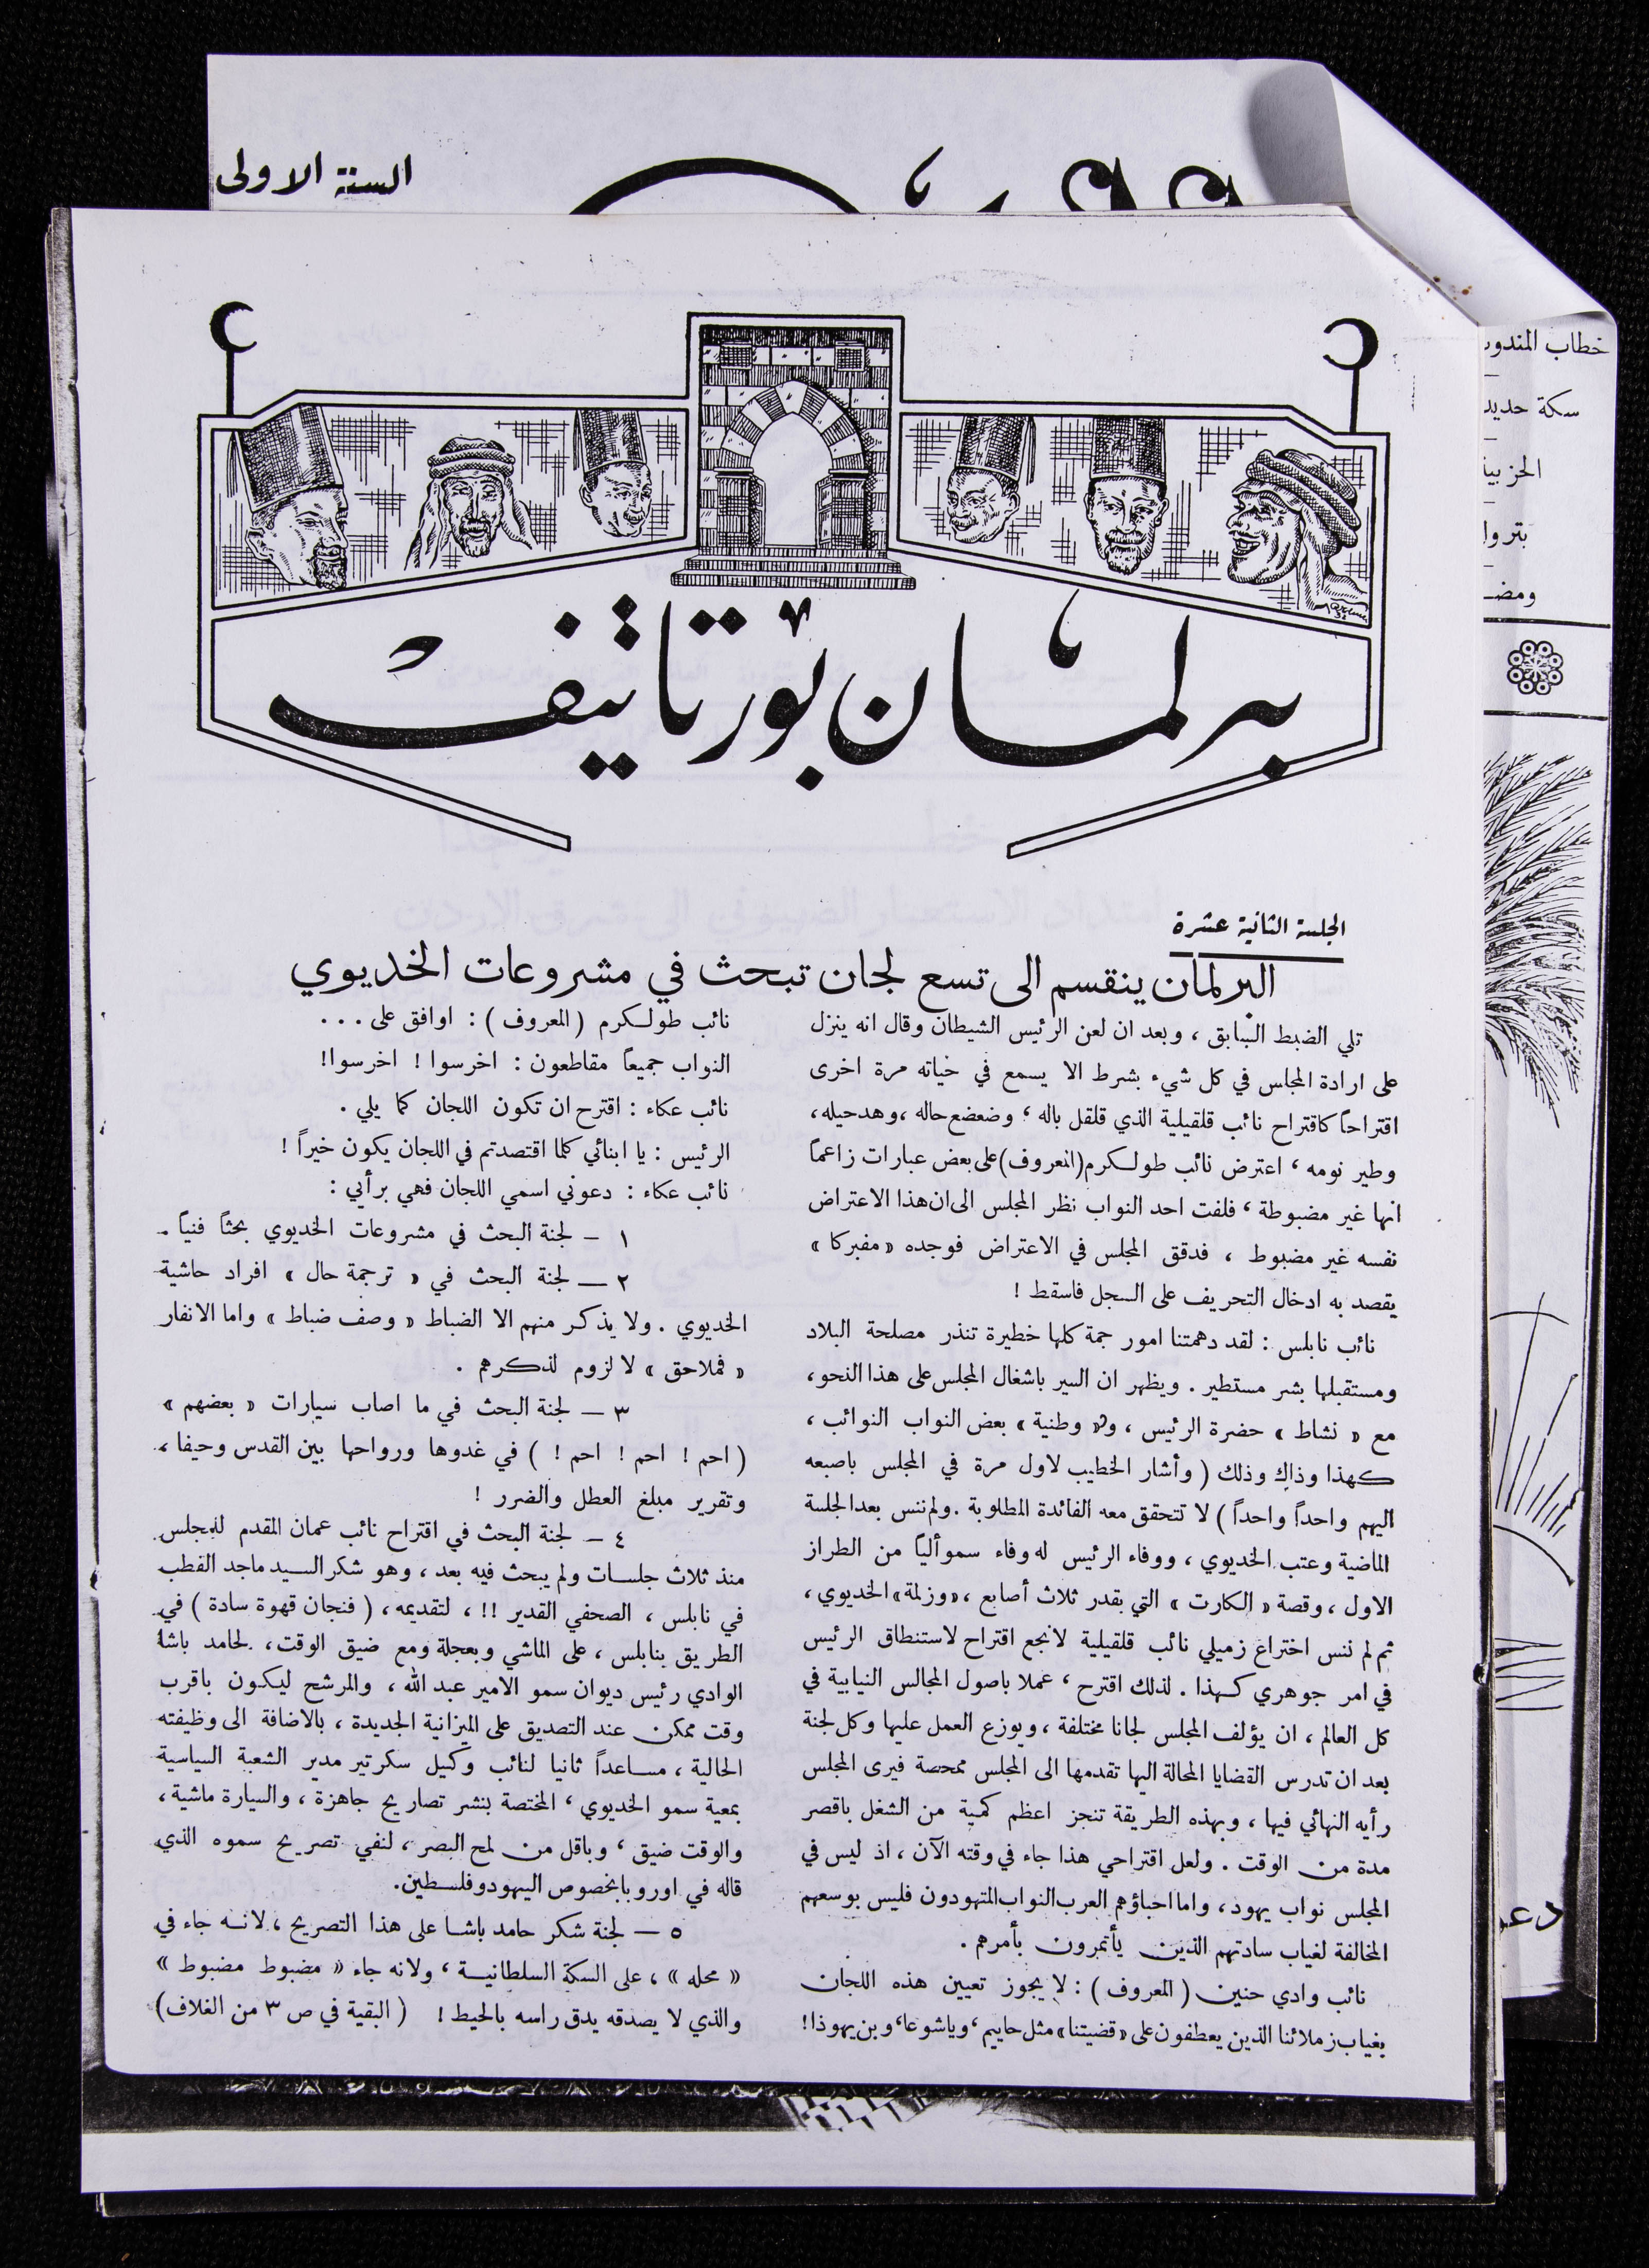 السنة الاولى
خطاب المندوب
سكة حديد
ومضـ
دعو
برلمان بورتاتيف
الجلسة الثانية عشرة
البرلمان ينقسم الى تسع لجان تبحث في مشروعات الخديوي
تلي الضبط السابق ، وبعد ان لعن الرئيس الشيطان وقال انه ينزل
على ارادة المجلس في كل شيء بشرط الا يسمع في حياته مرة اخرى
اقتراحاً كاقتراح نائب قلقيلية الذي قلقل باله ، وضعضع حاله ، وهد حيله ،
وطير نومه ، اعترض نائب طولكرم (المعروف) على بعض عبارات زاعماً
انها غير مضبوطة ، فلفت احد النواب نظر المجلس الى ان هذا الاعتراض
نفسه غير مضبوط ، فدقق المجلس في الاعتراض فوجده « مفبركا »
يقصد به ادخال التحريف على السجل فاسقط !
نائب نابلس : لقد دهمتنا امور جمة كلها خطيرة تنذر مصلحة البلاد
ومستقبلها بشر مستطير . ويظهر ان السير باشغال المجلس على هذا النحو ،
مع « نشاط » حضرة الرئيس ، و« وطنية » بعض النواب النوائب ،
كهذا وذاك وذلك ( وأشار الخطيب لاول مرة في المجلس باصبعه
اليهم واحداً واحداً ) لا تتحقق معه الفائدة المطلوبة . ولم ننس بعد الجلسة
الماضية وعتب الخديوي ، ووفاء الرئيس له وفاء سموألياً من الطراز
الاول ، وقصة « الكارت » التي بقدر ثلاث أصابع ، « وزلمة » الخديوي ،
ثم لم ننس اختراع زميلي نائب قلقيلية لانجع اقتراح لاستنطاق الرئيس
في امر جوهري كهذا . لذلك اقترح ، عملا باصول المجالس النيابية في
كل العالم ، ان يؤلف المجلس لجانا مختلفة ، ويوزع العمل عليها وكل لجنة
بعد ان تدرس القضايا المحالة اليها تقدمها الى المجلس ممحصة فيرى المجلس
رأيه النهائي فيها ، وبهذه الطريقة تنجز اعظم كمية من الشغل باقصر
مدة من الوقت . ولعل اقتراحي هذا جاء في وقته الآن ، اذ ليس في
المجلس نواب يهود ، واما احباؤهم العرب النواب المتهودون فليس بوسعهم
المخالفة لغياب سادتهم الذين يأتمرون بأمرهم .
نائب وادي حنين ( المعروف ) : لا يجوز تعيين هذه اللجان
بغياب زملائنا الذين يعطفون على « قضيتنا » مثل حاييم ، وياشوعا ، وبن يهوذا !
نائب طولكرم ( المعروف ) : اوافق على . . .
النواب جميعاً مقاطعون : اخرسوا ! اخرسوا !
نائب عكاء : اقترح ان تكون اللجان كما يلي .
الرئيس : يا ابنائي كلما اقتصدتم في اللجان يكون خيراً !
نائب عكاء : دعوني اسمي اللجان فهي برأيي :
١ – لجنة البحث في مشروعات الخديوي بحثاً فنياً .
٢ — لجنة البحث في « ترجمة حال » افراد حاشية
الخديوي . ولا يذكر منهم الا الضباط « وصف ضباط » واما الانفار
« فملاحق » لا لزوم لذكرهم .
٣ — لجنة البحث في ما اصاب سيارات « بعضهم »
( احم ! احم ! احم ! ) في غدوها ورواحها بين القدس وحيفا ،
وتقرير مبلغ العطل والضرر !
٤ – لجنة البحث في اقتراح نائب عمان المقدم للمجلس
منذ ثلاث جلسات ولم يبحث فيه بعد ، وهو شكر السيد ماجد القطب
في نابلس ، الصحفي القدير !! ، لتقديمه ، ( فنجان قهوة سادة ) في
الطريق بنابلس ، على الماشي وبعجلة ومع ضيق الوقت ، لحامد باشا
الوادي رئيس ديوان سمو الامير عبد الله ، والمرشح ليكون باقرب
وقت ممكن عند التصديق على الميزانية الجديدة ، بالاضافة الى وظيفته
الحالية ، مساعداً ثانيا لنائب وكيل سكرتير مدير الشعبة السياسية
بمعية سمو الخديوي ، المختصة بنشر تصاريح جاهزة ، والسيارة ماشية ،
والوقت ضيق ، وباقل من لمح البصر ، لنفي تصريح سموه الذي
قاله في اوروبا بخصوص اليهود وفلسطين .
٥ — لجنة شكر حامد باشا على هذا التصريح ، لانه جاء في
« محله » ، على السكة السلطانية ، ولانه جاء « مضبوط مضبوط »
والذي لا يصدقه يدق راسه بالحيط ! ( البقية في ص ٣ من الغلاف )